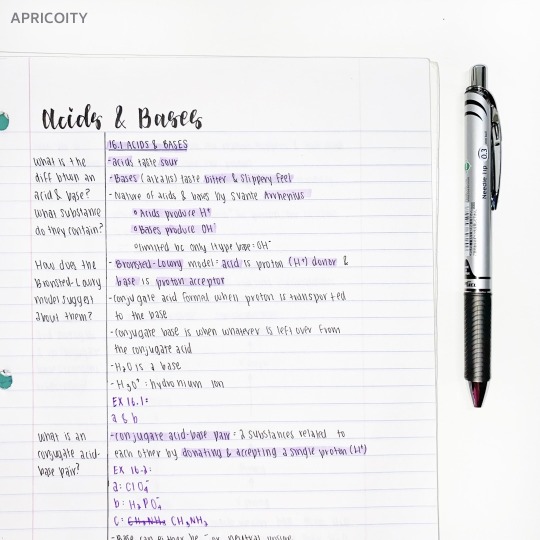 APRICOITY
Acids & Bases
16.1 ACIDS & BASES
What is the
diff btwn an
acid & base?
What substance
do they contain?
-acids taste sour
-Bases (alkalis) taste bitter & slippery feel
-Nature of acids & bases by Svante Arrhenius
Acids produce H⁺
Bases produce OH⁻
limited bc only 1 type base=OH⁻
How does the
Bronsted-Lowry
model suggest
about them?
-Bronsted-Lowry model= acid is proton (H⁺) donor &
base is proton acceptor
-conjugate acid formed when proton is transported
to the base
-conjugate base is when whatever is left over from
the conjugate acid
-H₂O is a base
-H₃O⁺: hydronium ion
EX 16.1:
a & b
What is an
conjugate acid-
base pair?
-conjugate acid-base pair= 2 substances related to
each other by donating & accepting a single proton (H⁺)
EX 16.2:
a: ClO₄⁻
b: H₂PO₄⁻
c: CH₃NH₂ CH₃NH₂
-Base can either be - or neutral
Needle Tip 0.3